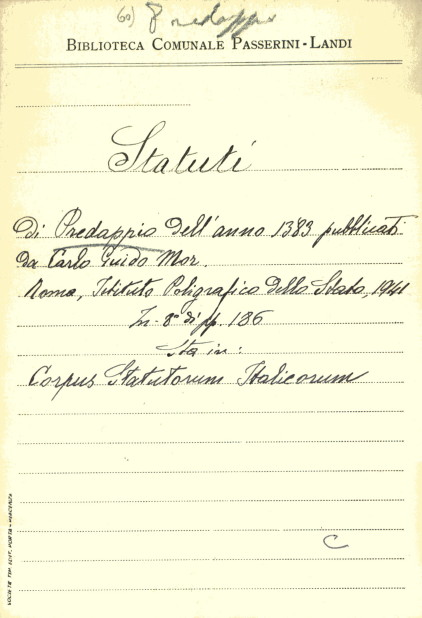 60) Predappio
BIBLIOTECA COMUNALE PASSERINI-LANDI
Statuti
di Predappio dell'anno 1383 pubblicati
da Carlo Guido Mor.
Roma, Istituto Poligrafico dello Stato, 1941
In-8° di pp. 186
Sta in:
Corpus Statutorum Italicorum
C